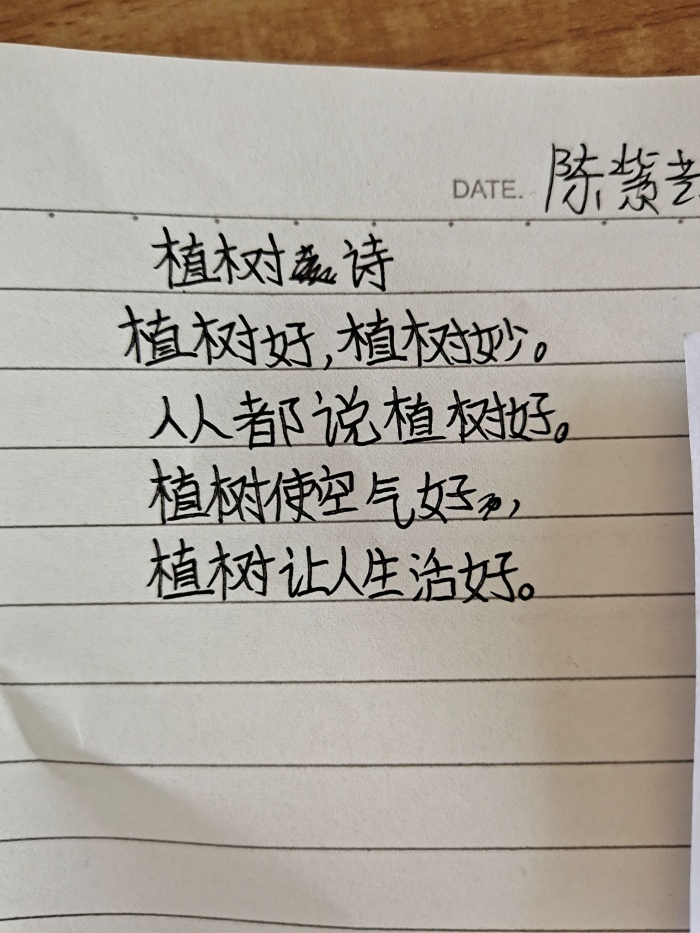 DATE. 陈紫
植树诗
植树好,植树妙。
人人都说植树好。
植树使空气好,
植树让人生活好。